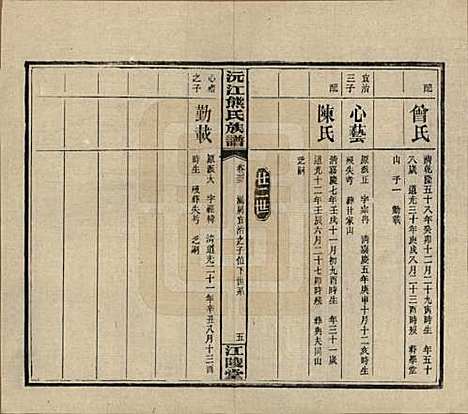 配
曾氏
清乾隆五十八年癸卯十二月二十九寅時生 年五十
八歲 道光三十年庚戌八月二十三亥時殁 葬學堂
山 子一 勤載
宜治
三子
心藝
原派正 字宗冉 清嘉慶五年庚申十月十二亥時生
殁失考 葬甘家山
配
陳氏
清嘉慶七年壬戌十一月初九酉時生 年三十一歲
道光十二年壬辰六月二十七卯時殁 葬與夫同山
乏嗣
廿二世
沅江熊氏族譜
宜治之子位下世系
五
江陵堂
心
之子
勤載
原派大 字 清道光二十一年辛丑八月十三酉
時生 殁葬失考 乏嗣